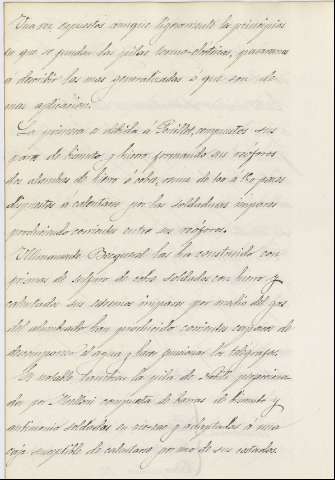 Una vez espuestos aunque ligeramente los principios
en que se fundan las pilas termo-electricas, pasaremos
á describir las mas generalizadas ó que son de
mas aplicacion.
La primera es debida á Pouillet, compuestos sus
pares de bismuto y hierro formando sus reóforos
dos alambres de hierro ó cobre, consta de 100 a 120 pares
dispuestos a calentarse por las soldaduras impares
produciendo corrientes entre sus reóforos.
Ultimamente Becquerel las ha construido con
prismas de sulfuro de cobre soldados con hierro y
calentados sus estremos impares por medio del gas
del alumbrado han producido corrientes capaces de
descomponer el agua y hacer funcionar los telégrafos.
Es notable tambien la pila de Nobili perfecciona-
da por Melloni compuesta de barras de bismuto y
antimonio soldadas en y adaptadas á una
caja suceptible de calentarse por uno de sus costados.